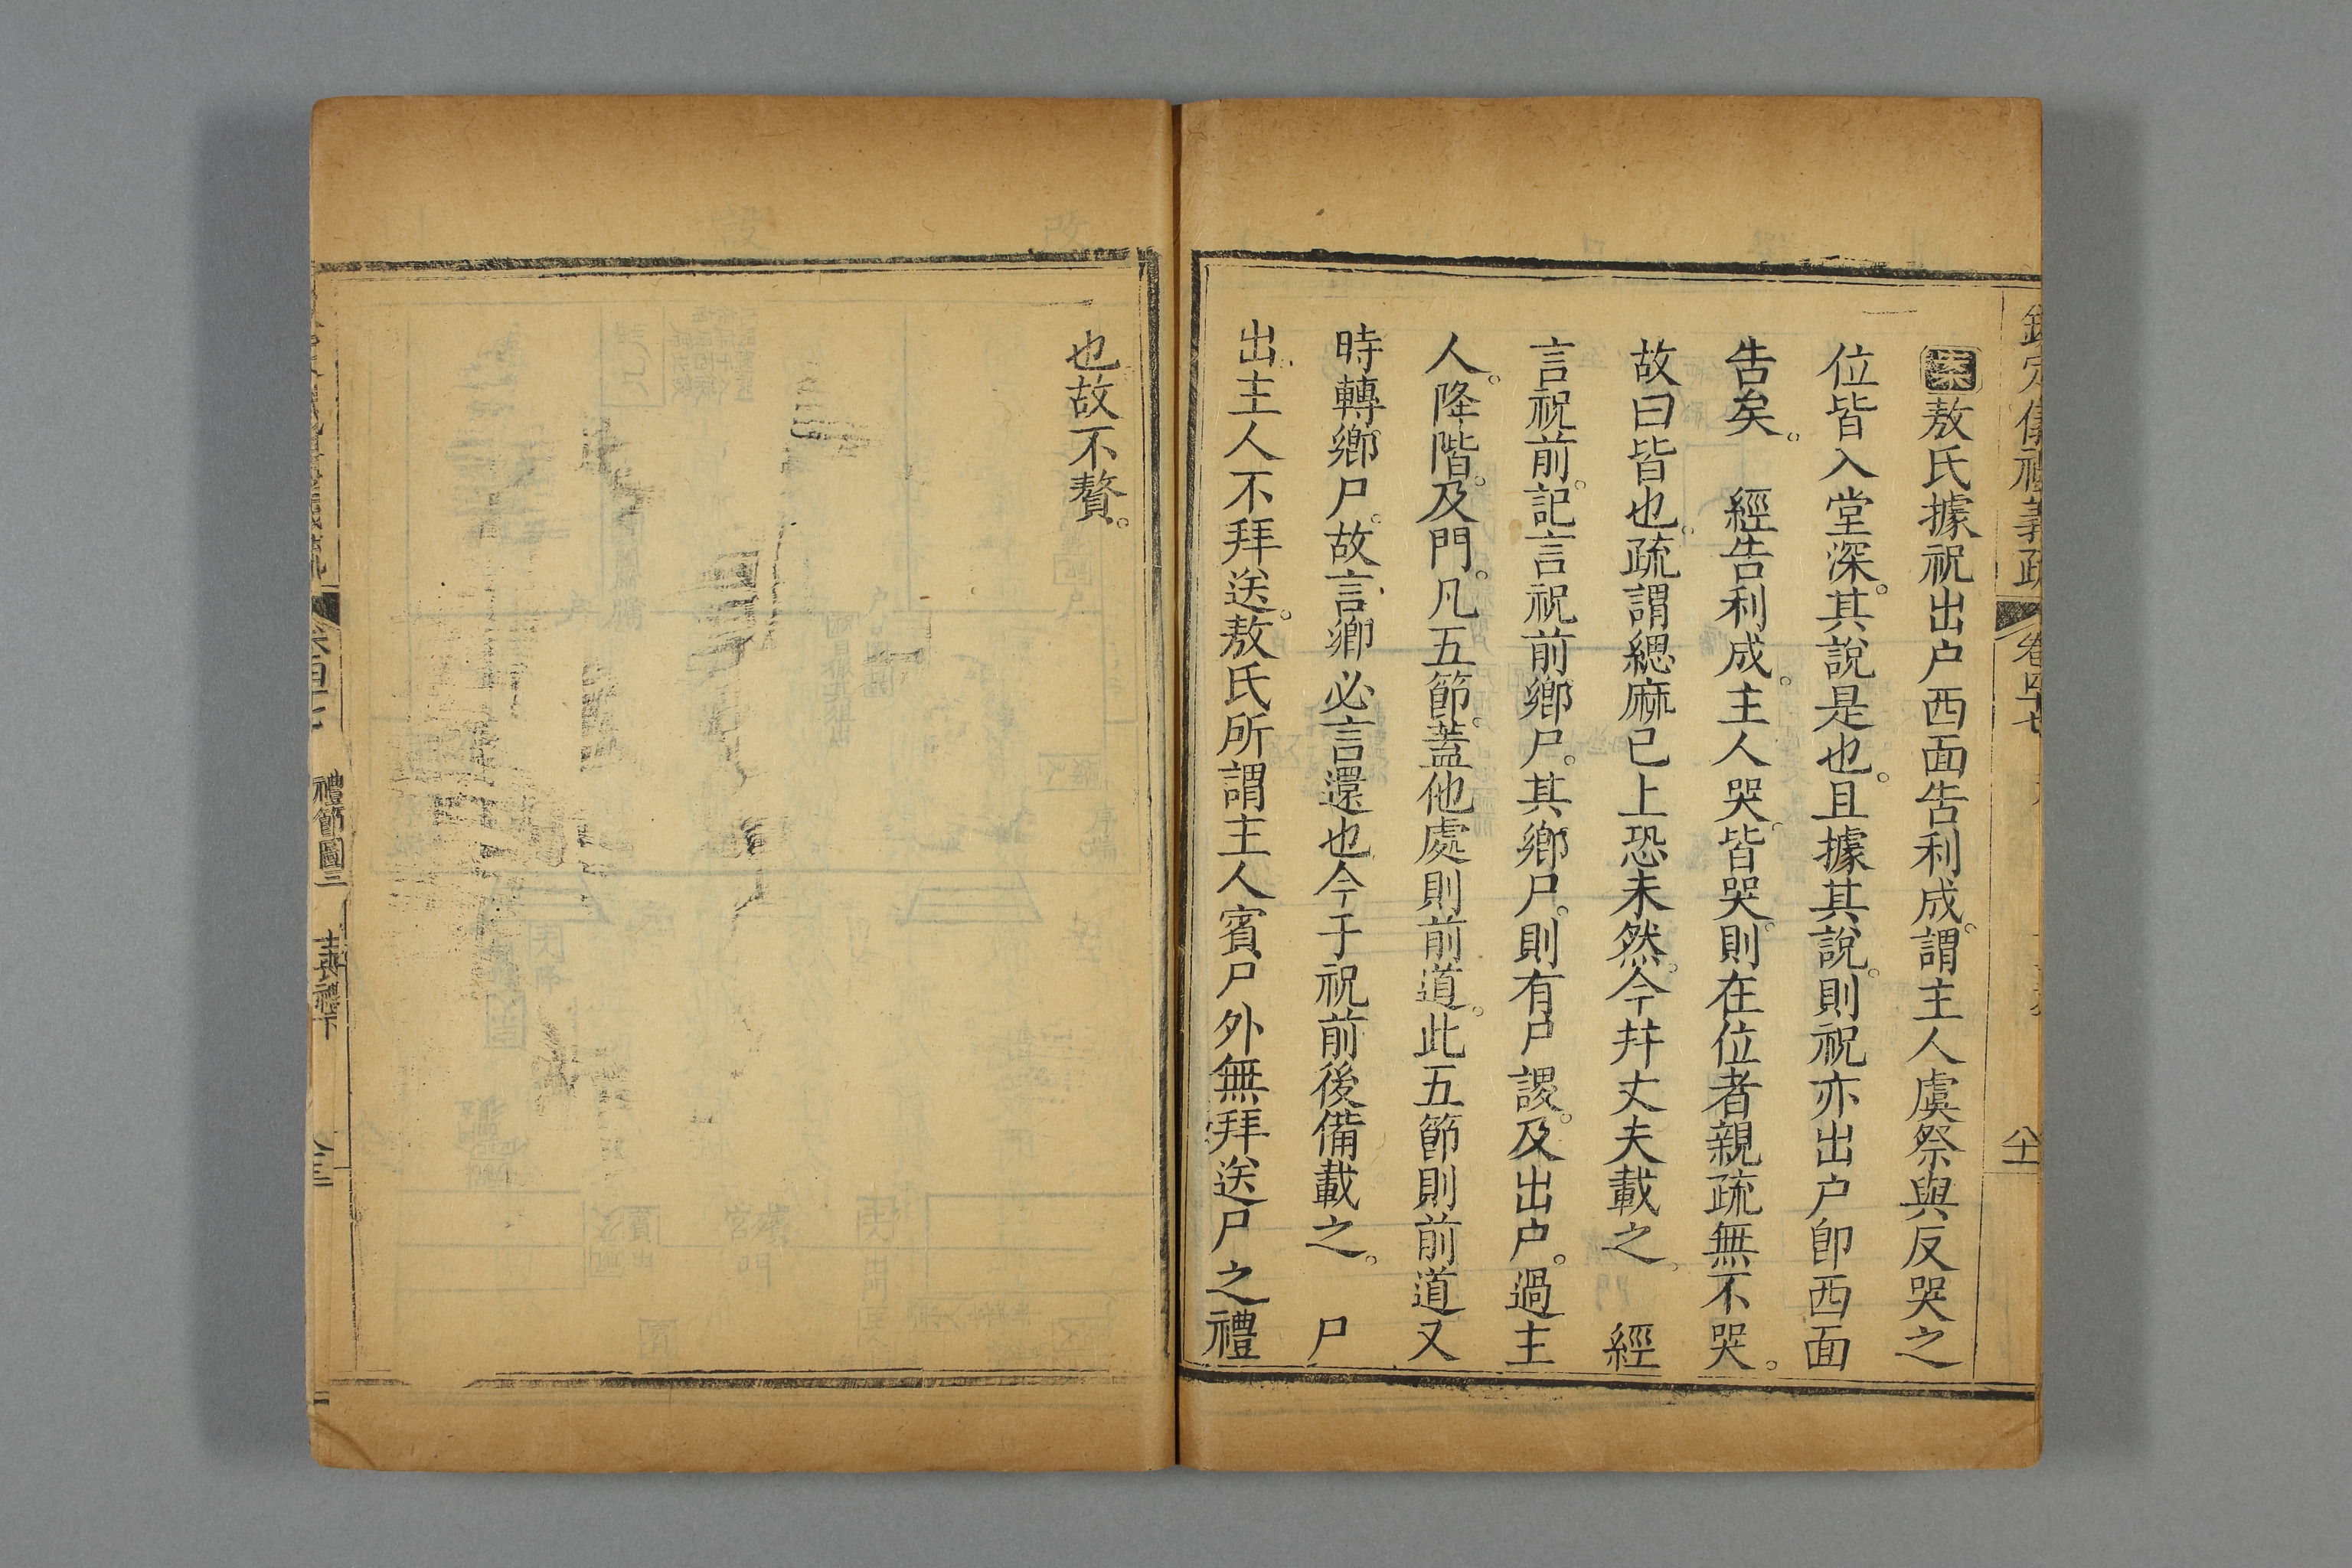 欽定儀禮義疏 卷四十七
案敖氏據祝出户西面告利成。謂主人虞祭與反哭之
位皆入堂深。其說是也。且據其說。則祝亦出户卽西面
告矣。 經告利成。主人哭。皆哭。則在位者親疏無不哭。
故曰皆也。疏謂緦麻已上恐未然。今幷丈夫載之。 經
言祝前。記言祝前鄉尸。其鄉尸。則有户謖。及出户。過主
人。降階。及門。凡五節。蓋他處則前道。此五節則前道又
時轉鄉尸。故言鄉必言還也今于祝前後備載之。 尸
出。主人不拜送。敖氏所謂主人賓尸外無拜送尸之禮
也故不贅。
禮節圖三 喪禮下